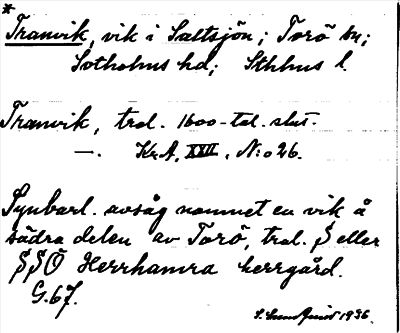 *
Tranvik, vik i Saltsjön; Torö sn;
Sotholms hd; Sthlms l.
Tranvik, trol. 1600-tal. slut.
—. Kr.A, XXII, N:o 26.
Synbarl. avsåg namnet en vik å
södra delen av Torö, trol. S eller
SSÖ Herrhamra herrgård.
G.67.
1936.